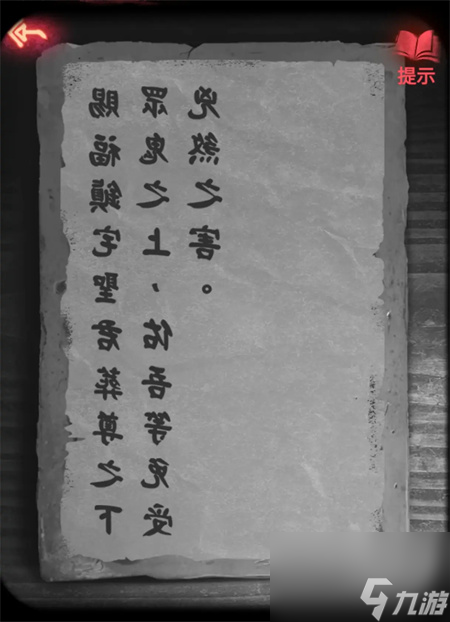 提示
賜福鎮宅聖君葬尊之下
眾鬼之上，佑吾等免受
兇煞之害。
九游